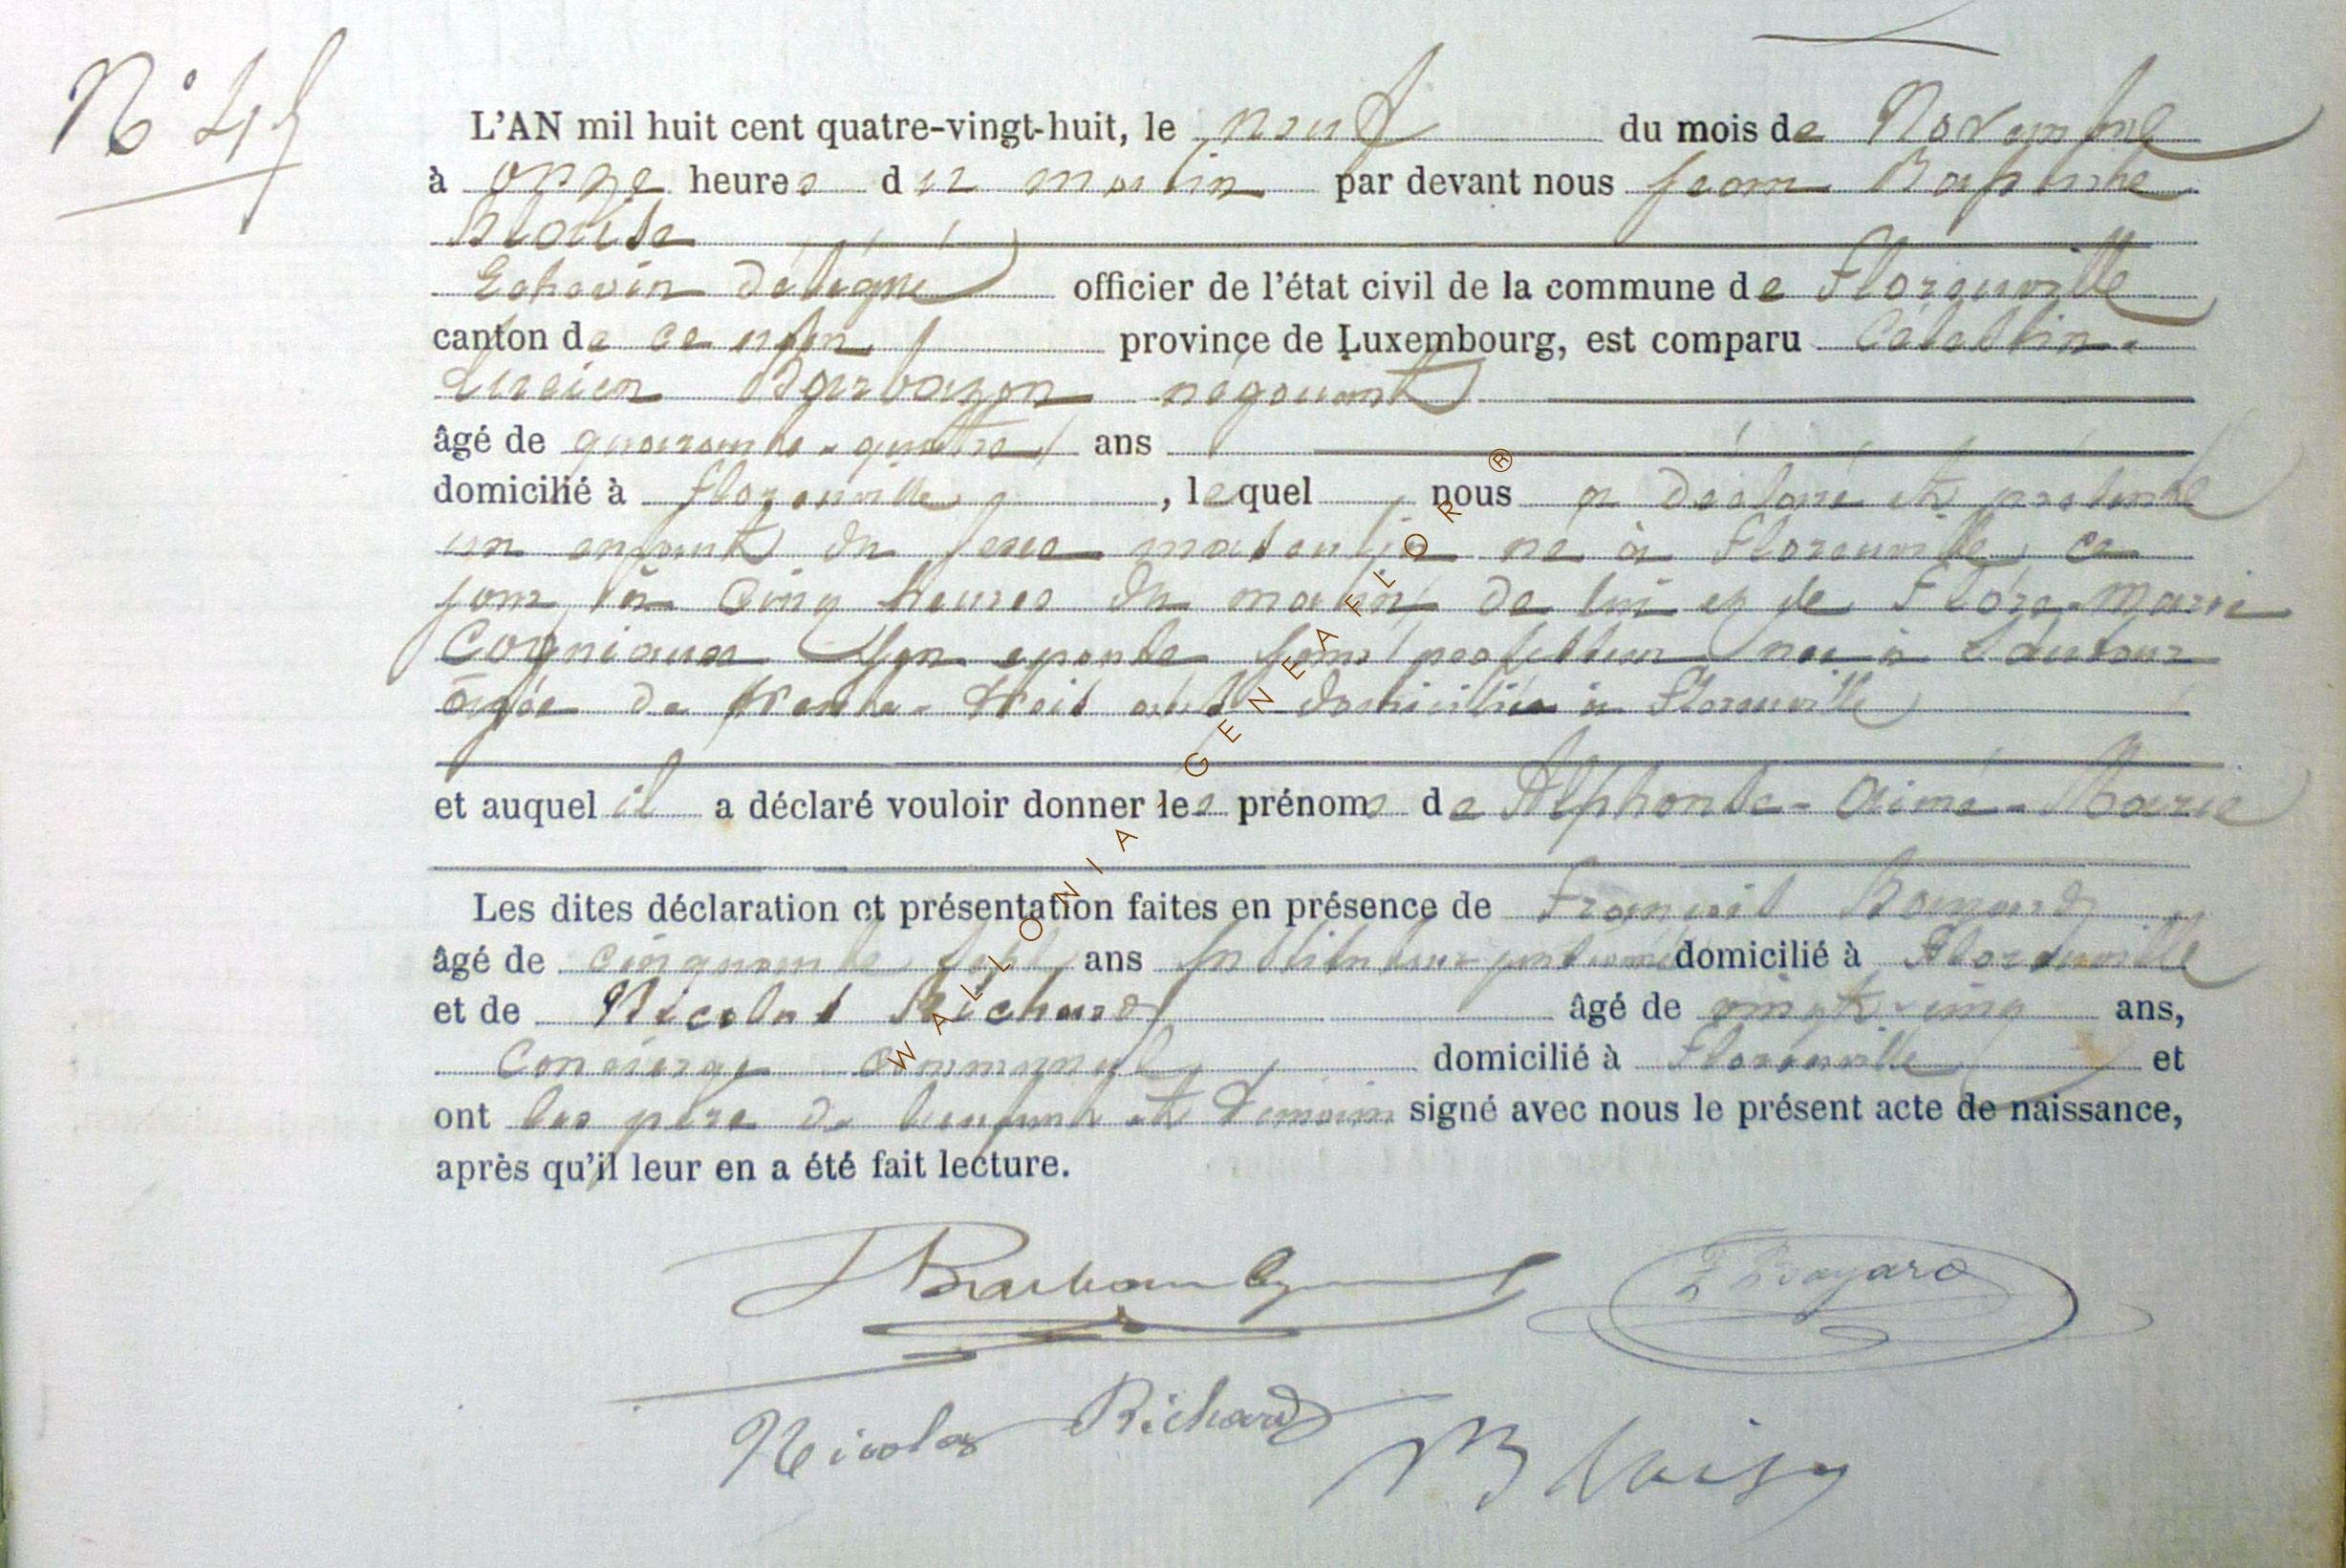 N° 45
L'AN mil huit cent quatre-vingt-huit, le neuf du mois de Novembre
à onze heures du matin par devant nous Jean Baptiste
Blaise
Echevin délégué officier de l'état civil de la commune de Florenville
canton de ce nom province de Luxembourg, est comparu Célestin-
Lucien Barbazon négociant
âgé de quarante-quatre ans
domicilié à Florenville, lequel nous a déclaré et présenté
un enfant du sexe masculin né à Florenville ce
jour à cinq heures du matin de lui et de Flore-Marie
Cogniaux son épouse sans profession née à
âgée de trente-trois ans domiciliée à Florenville
et auquel il a déclaré vouloir donner les prénoms de Alphonse-Aimé-Marie
Les dites déclaration et présentation faites en présence de François Bayard
âgé de cinquante sept ans Instituteur pensionné domicilié à Florenville
et de Nicolas Richard âgé de vingt-cinq ans,
Concierge communal domicilié à Florenville et
ont les père de l'enfant et témoins signé avec nous le présent acte de naissance,
après qu'il leur en a été fait lecture.
F Bayard
Nicolas Richard
Blaise
WALLONIA GENEAFLOR®